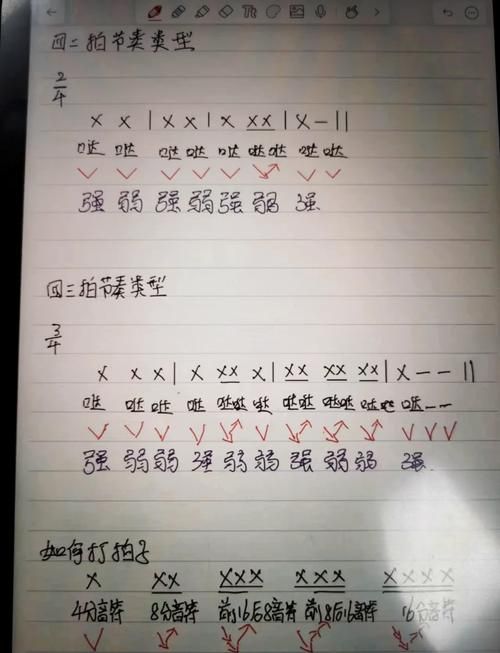 四二拍节奏类型
2/4
X X | X X | X XX | X — ||
哒 哒 哒 哒 哒 哒哒 哒 哒
强 弱 强 弱 强 弱 强
四三拍节奏类型
3/4
X X X | X XX X | XX XX XX | X — — ||
哒 哒 哒 哒 哒哒 哒 哒哒 哒哒 哒哒 哒——
强 弱 弱 强 弱 弱 强 弱 弱 强
如何打拍子
X XX XXX XXX XXXX
4分音符 8分音符 前16后8音符 前8后16音符 16分音符